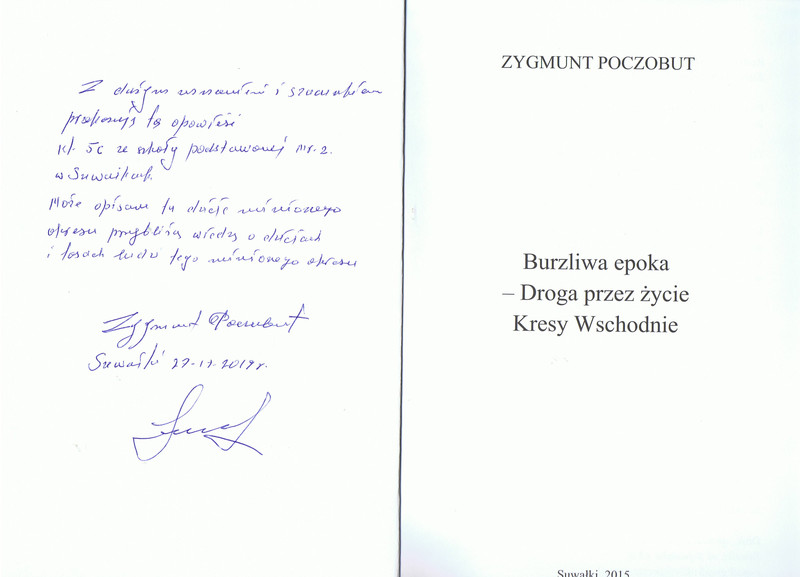 Z dużym uznaniem i szacunkiem
przekazuję tą opowieść
kl. 5c ze szkoły podstawowej nr. 2.
w Suwałkach.
Może opisane tu dzieje minionego
okresu przybliżą wiedzę o dziejach
i losach ludu tego minionego okresu
Zygmunt Poczobut
Suwałki 2019r.
ZYGMUNT POCZOBUT
Burzliwa epoka
– Droga przez życie
Kresy Wschodnie
Suwałki, 2015